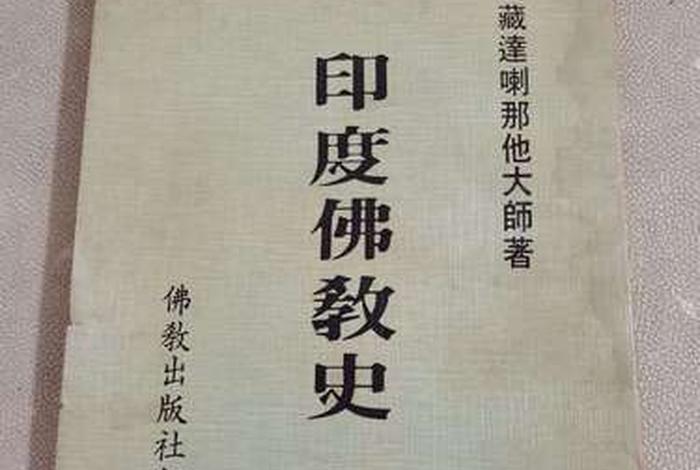 藏達喇那他大師著
印度佛教史
佛教出版社